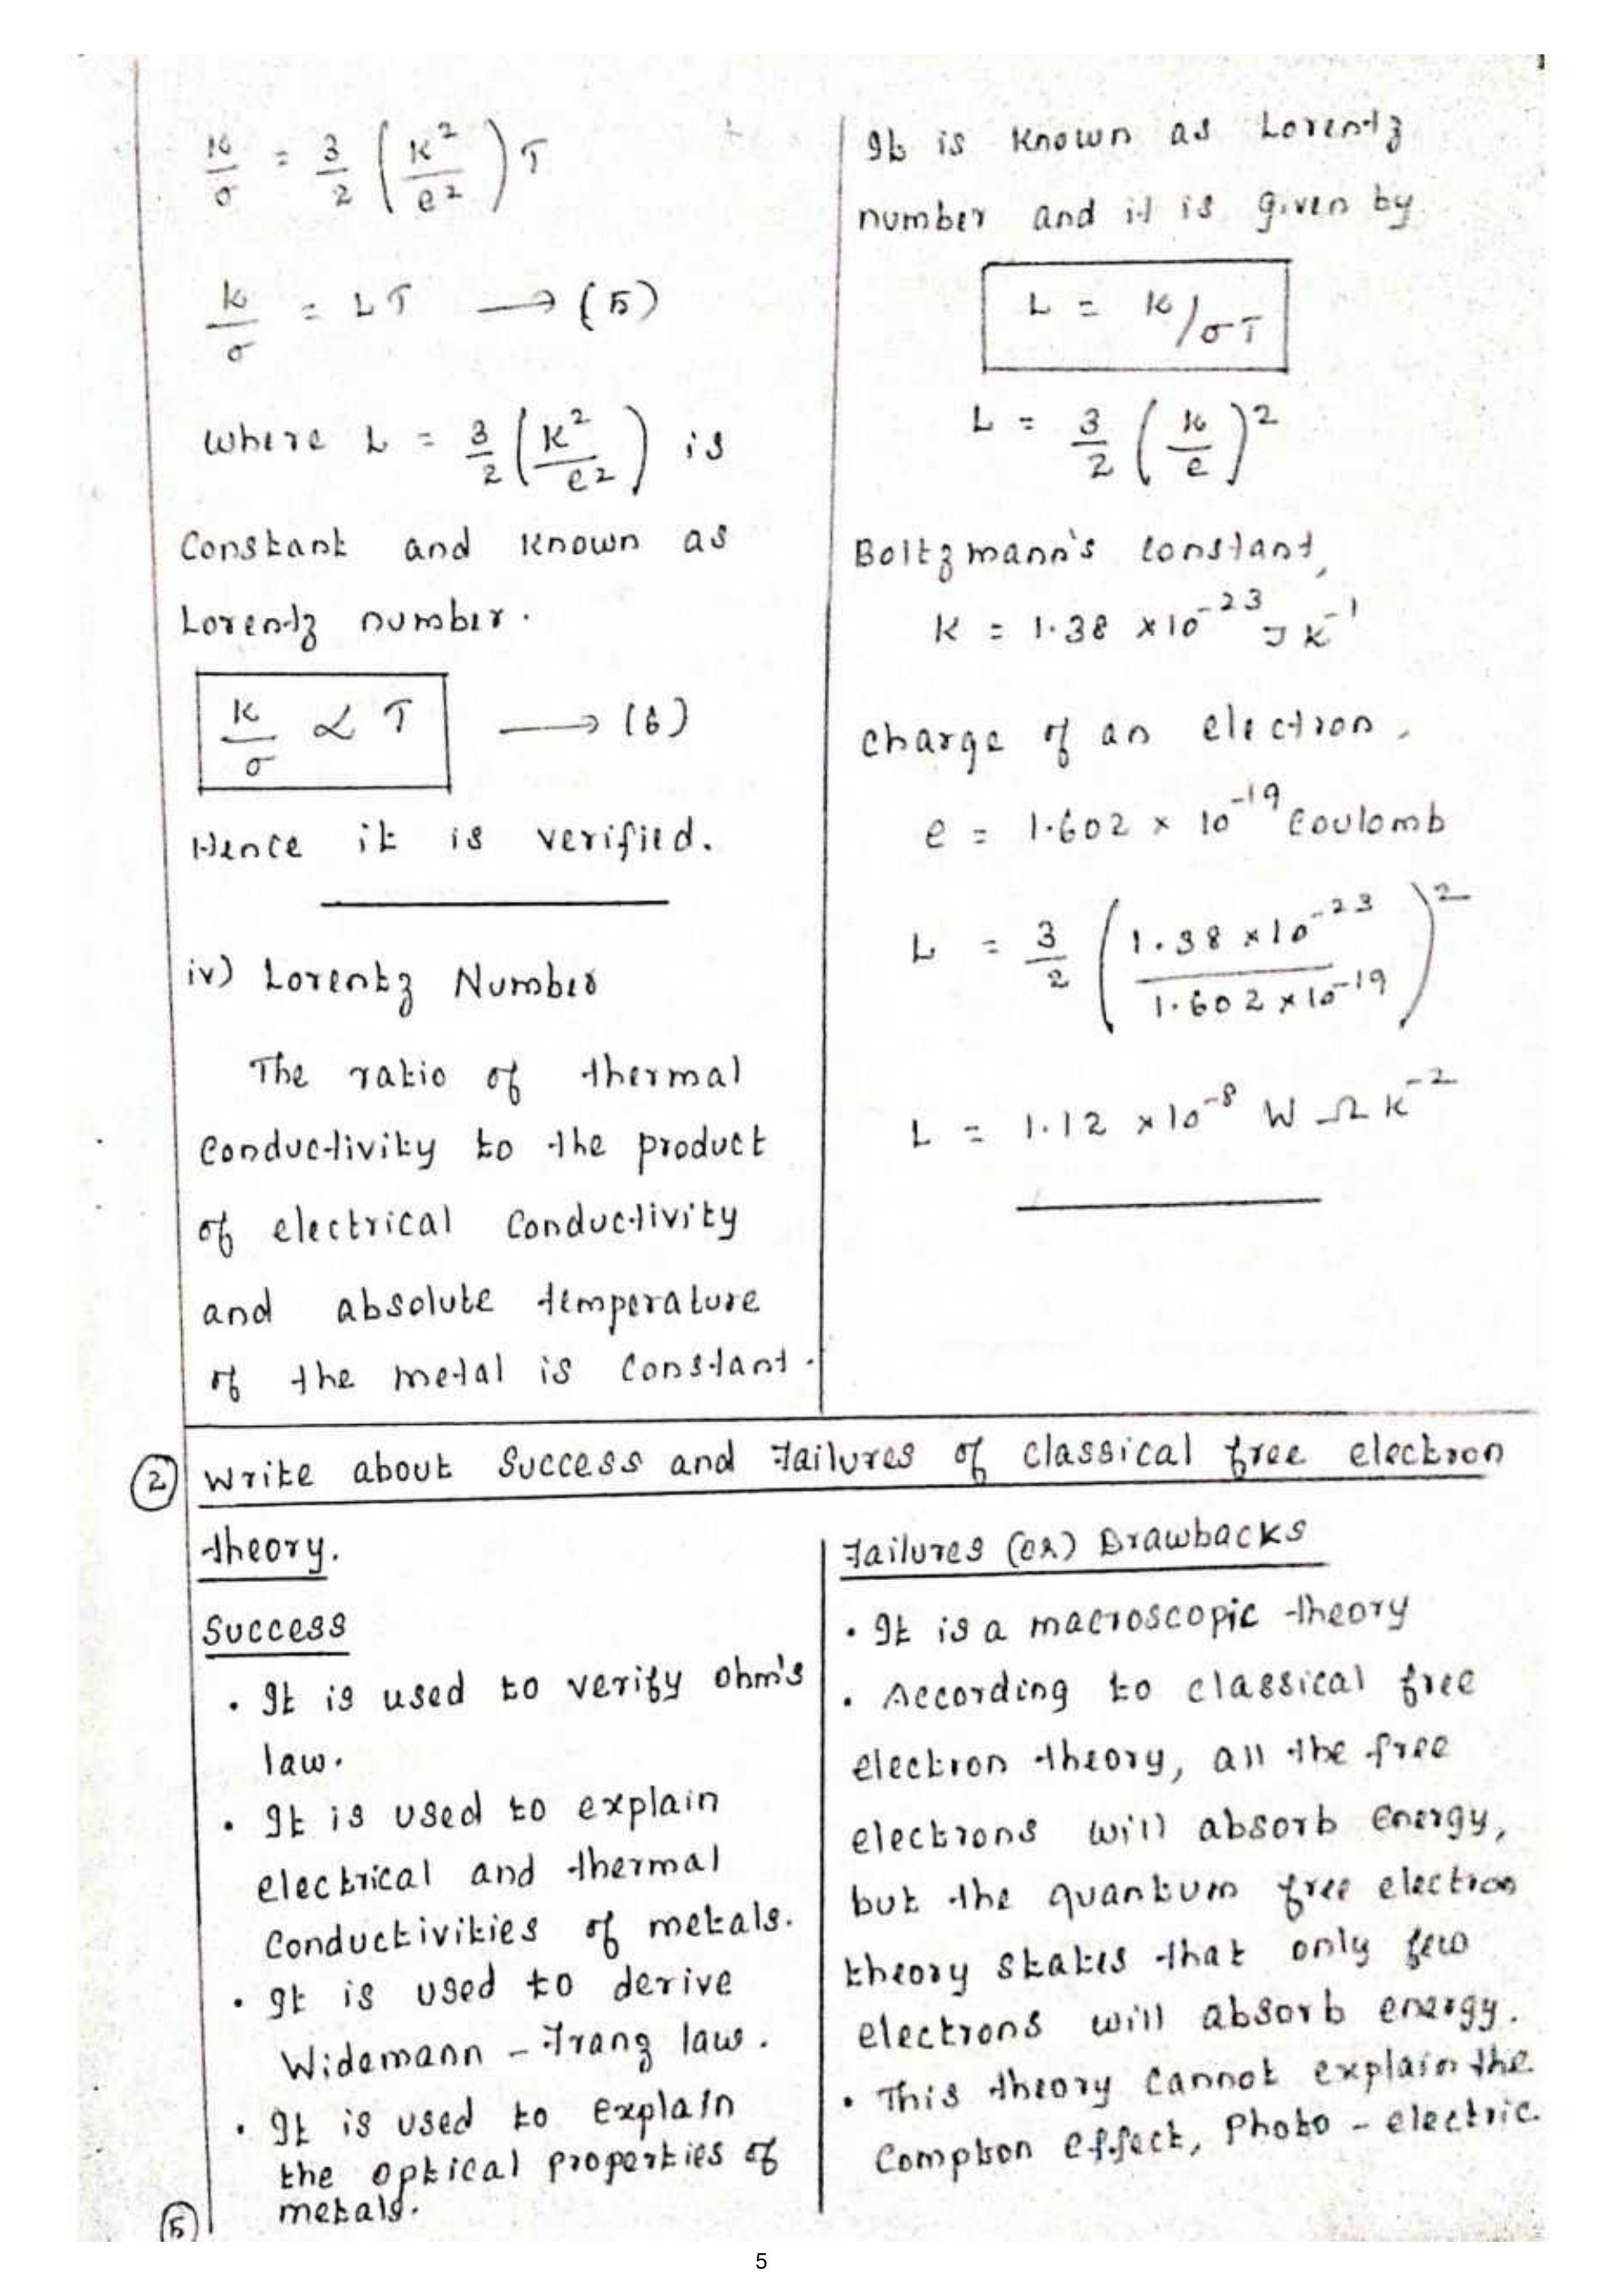 K/σ = 3/2 (K²/e²) T
K/σ = LT → (5)
where L = 3/2 (K²/e²) is
Constant and known as
Lorentz number.
K/σ ∝ T → (6)
Hence it is verified.
iv) Lorentz Number
The ratio of thermal
Conductivity to the product
of electrical Conductivity
and absolute temperature
of the metal is Constant.
It is known as Lorentz
number and it is given by
L = K/σT
L = 3/2 (K/e)²
Boltzmann's constant,
K = 1.38 × 10⁻²³ J K⁻¹
charge of an electron,
e = 1.602 × 10⁻¹⁹ Coulomb
L = 3/2 (1.38 × 10⁻²³ / 1.602 × 10⁻¹⁹)²
L = 1.12 × 10⁻⁸ W Ω K⁻²
2 Write about Success and Failures of classical free electron
theory.
Success
• It is used to verify ohm's
law.
• It is used to explain
electrical and thermal
Conductivities of metals.
• It is used to derive
Widemann - Franz law.
• It is used to explain
the optical properties of
metals.
Failures (or) Drawbacks
• It is a macroscopic theory
• According to classical free
electron theory, all the free
electrons will absorb energy,
but the quantum free electron
theory states that only few
electrons will absorb energy.
• This theory cannot explain the
Compton effect, Photo - electric.
5
5